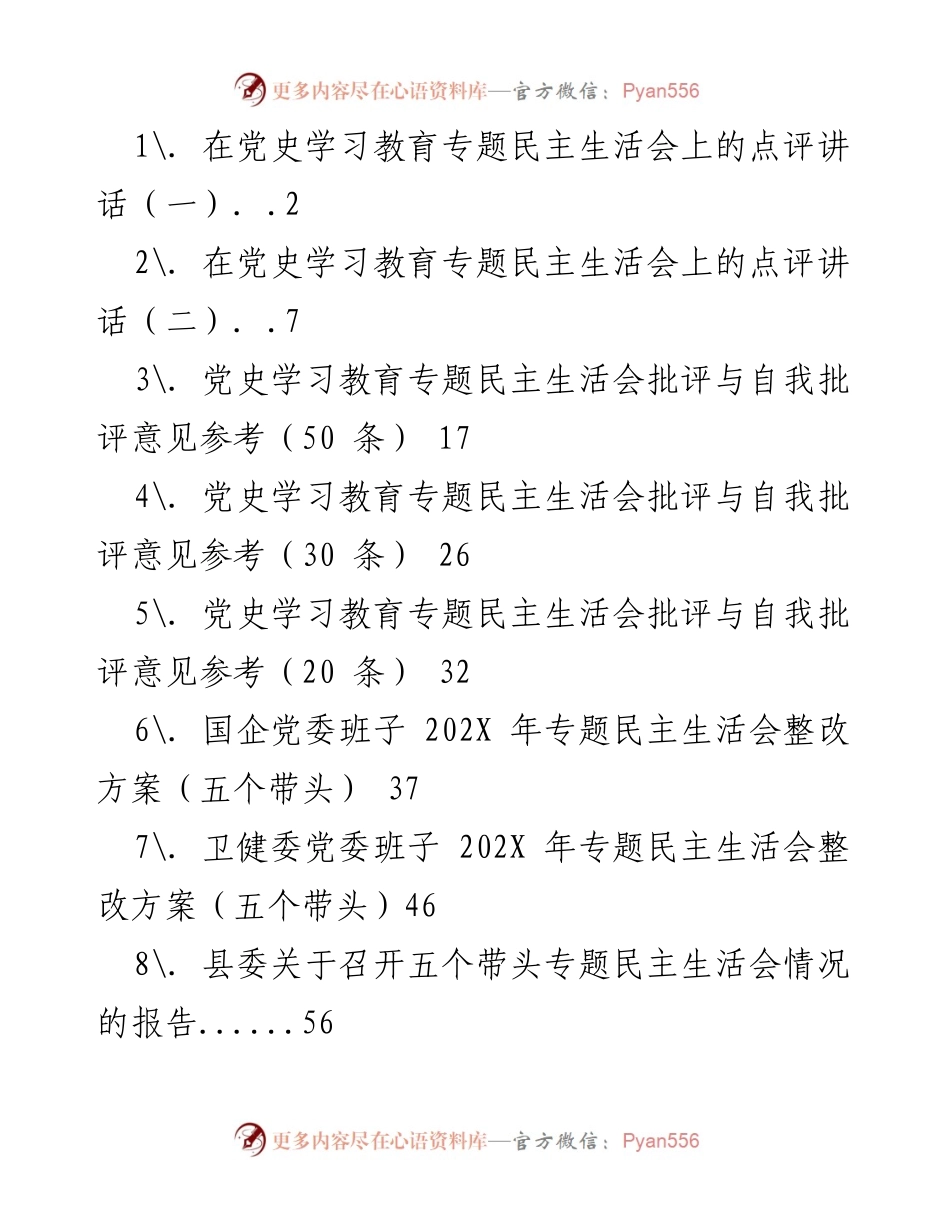 更多内容尽在心语资料库—官方微信：Pyan556
1\. 在党史学习教育专题民主生活会上的点评讲
话（一）. .2
2\. 在党史学习教育专题民主生活会上的点评讲
话（二）. .7
3\. 党史学习教育专题民主生活会批评与自我批
评意见参考（50 条） 17
4\. 党史学习教育专题民主生活会批评与自我批
评意见参考（30 条） 26
5\. 党史学习教育专题民主生活会批评与自我批
评意见参考（20 条） 32
6\. 国企党委班子 202X 年专题民主生活会整改
方案（五个带头） 37
7\. 卫健委党委班子 202X 年专题民主生活会整
改方案（五个带头）46
8\. 县委关于召开五个带头专题民主生活会情况
的报告......56
更多内容尽在心语资料库—官方微信：Pyan556